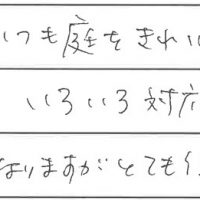 いつも庭をきれい
いろいろ対応
なりますがとても